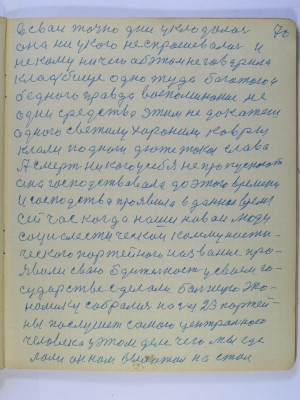 70
в сваи точно дни укладалас
она ни у кого неспрашевалас и
некому ничего обэтом неговарила
кладбище одно туда багатого и
бедного правда воспоминание не
одни средства этим не докажеш
одного светилу хоронили ковры
клали под ноги
А смерт никого усебя непропускност
она господствовала до этого времени
и господства проявила в данное время
сей час когда наши новаи люди
социлестической коммунисти-
ческого портейного название про-
явили сваю бдителност у своем го-
сударстве сделали болшую эко-
номику собралися на 23 портей-
ны послушит самого централного
человека у этом деле чего мы сде
лали он нам выложил на стол